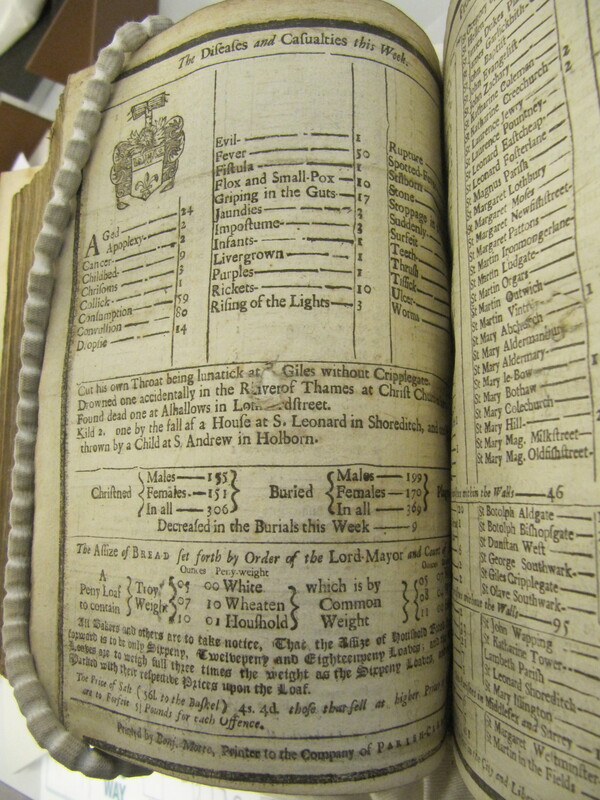 The Diseases and Casualties this Week.
AGed 24
Apoplexy 2
Cancer 2
Childbed 9
Chrisoms 3
Collick 1
Consumption 59
Convulsion 80
Dropsie 14
Evil 1
Fever 50
Fistula 1
Flox and Small-Pox 10
Griping in the Guts 17
Jaundies 3
Impostume
Infants 1
Livergrown 1
Purples 1
Rickets 10
Rising of the Lights 3
Rupture
Spotted
Stilborn
Stone
Stoppage in
Suddenly
Surfeit
Teeth
Thrush
Tissick
Ulcer
Worms
Cut his own Throat being lunatick at Giles without Cripplegate.
Drowned one accidentally in the River of Thames at Christ
Found dead one at Alhallows in Lom dstreet.
Kild 2. one by the fall of a House at S. Leonard in Shoreditch, and
thrown by a Child at S. Andrew in Holborn.
Christned Males 155 Females 151 In all 306
Buried Males 199 Females 170 In all 369
Decreased in the Burials this Week 9
The Assize of BREAD set forth by Order of the Lord-Mayor and Court of
Ounces Peny-weight
A Peny Loaf to contain Troy Weight
05 00 White
07 10 Wheaten
10 01 Houshold
which is by Common Weight
All Bakers and others are to take notice, That the Assize of Houshold
forward is to be only Sixpeny, Twelvepeny and Eighteenpeny Loaves;
Loaves are to weigh full three times the weight as the Sixpeny Loaves,
Marked with their respective Prices upon the Loaf.
The Price of Salt (56l. to the Bushel) 4s. 4d. those that sell at higher
are to Forfeit 5 Pounds for each Offence.
Printed by Benj. Motte, Printer to the Company of
St John Evangelist
St John Zachary
St Katharine Coleman 2
St Katharine Creechurch 2
St Laurence Jewry
St Laurence Pountney
St Leonard Eastcheap
St Leonard Fosterlane
St Magnus Parish
St Margaret Lothbury
St Margaret Moses
St Margaret Newfishstreet
St Margaret Pattons
St Martin Ironmongerlane
St Martin Ludgate
St Martin Orgars
St Martin Outwich 1
St Martin Vintry
St Mary Abchurch
St Mary Aldermanbury
St Mary Aldermary 1
St Mary le-Bow
St Mary Bothaw
St Mary Colechurch
St Mary Hill
St Mary Mag. Milkstreet
St Mary Mag. Oldfishstreet
within the Walls 46
St Botolph Aldgate
St Botolph Bishopsgate
St Dunstan West
St George Southwark
St Giles Cripplegate
St Olave Southwark
the Walls 95
St John Wapping
St Katharine Tower
Lambeth Parish
St Leonard Shoreditch
St Mary Islington
in Middlesex and Surrey
St Margaret Westminster
St Martin in the Fields
in the City and
WAY